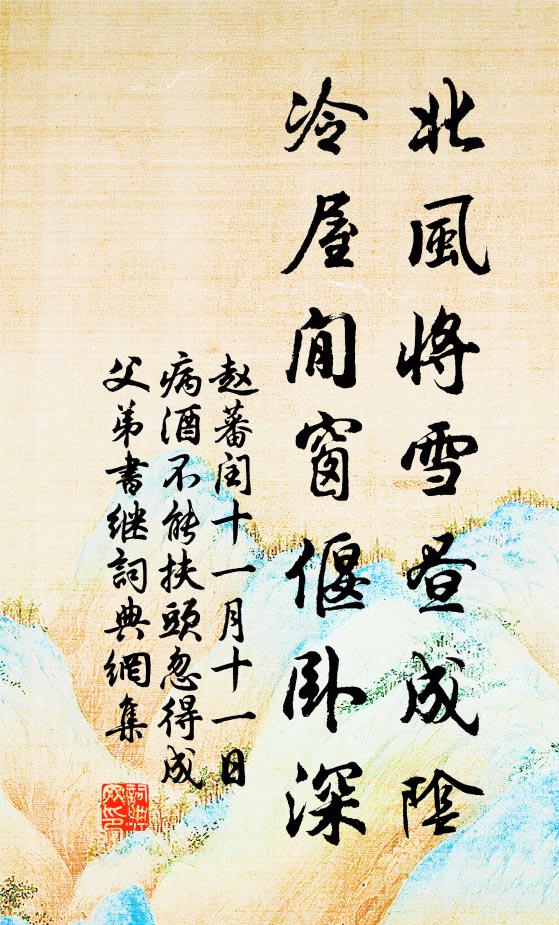 北風將雪昼成陰
冷屋閒窗偃卧深
赵蕃闰十一月十一日
病酒不能扶頭忽得成
父弟書继詞典網集